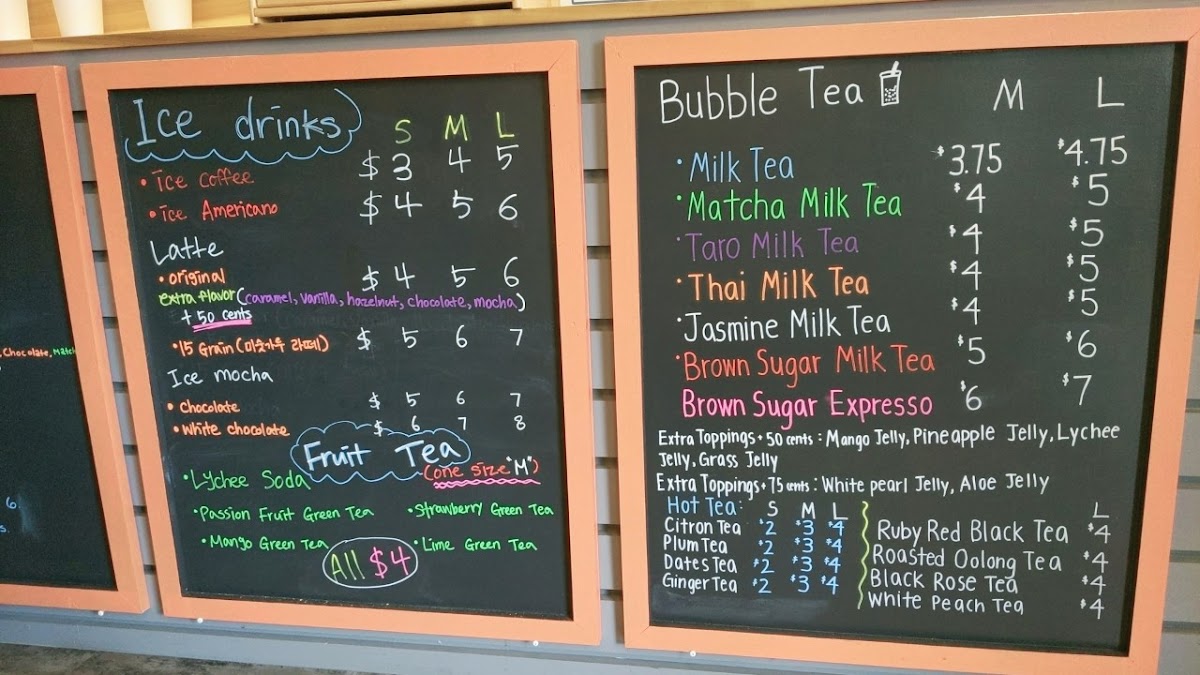 , Chocolate, Match
6
s.
Ice drinks
S M L
• ice coffee $ 3 4 5
• ice Americano $ 4 5 6
Latte
• original $ 4 5 6
extra flavor (caramel, vanilla, hazelnut, chocolate, mocha)
+ 50 cents
• 15 Grain (미숫가루 라떼) $ 5 6 7
Ice mocha
• Chocolate $ 5 6 7
• White chocolate $ 6 7 8
Fruit Tea
(one size "M")
• Lychee Soda
• Passion Fruit Green Tea • Strawberry Green Tea
• Mango Green Tea • Lime Green Tea
All $4
Bubble Tea M L
• Milk Tea $3.75 $4.75
• Matcha Milk Tea $4 $5
• Taro Milk Tea $4 $5
• Thai Milk Tea $4 $5
• Jasmine Milk Tea $4 $5
• Brown Sugar Milk Tea $5 $6
Brown Sugar Expresso $6 $7
Extra Toppings + 50 cents : Mango Jelly, Pineapple Jelly, Lychee
Jelly, Grass Jelly
Extra Toppings + 75 cents : White pearl Jelly, Aloe Jelly
Hot Tea: S M L
Citron Tea $2 $3 $4
Plum Tea $2 $3 $4
Dates Tea $2 $3 $4
Ginger Tea $2 $3 $4
L
Ruby Red Black Tea $4
Roasted Oolong Tea $4
Black Rose Tea $4
White Peach Tea $4